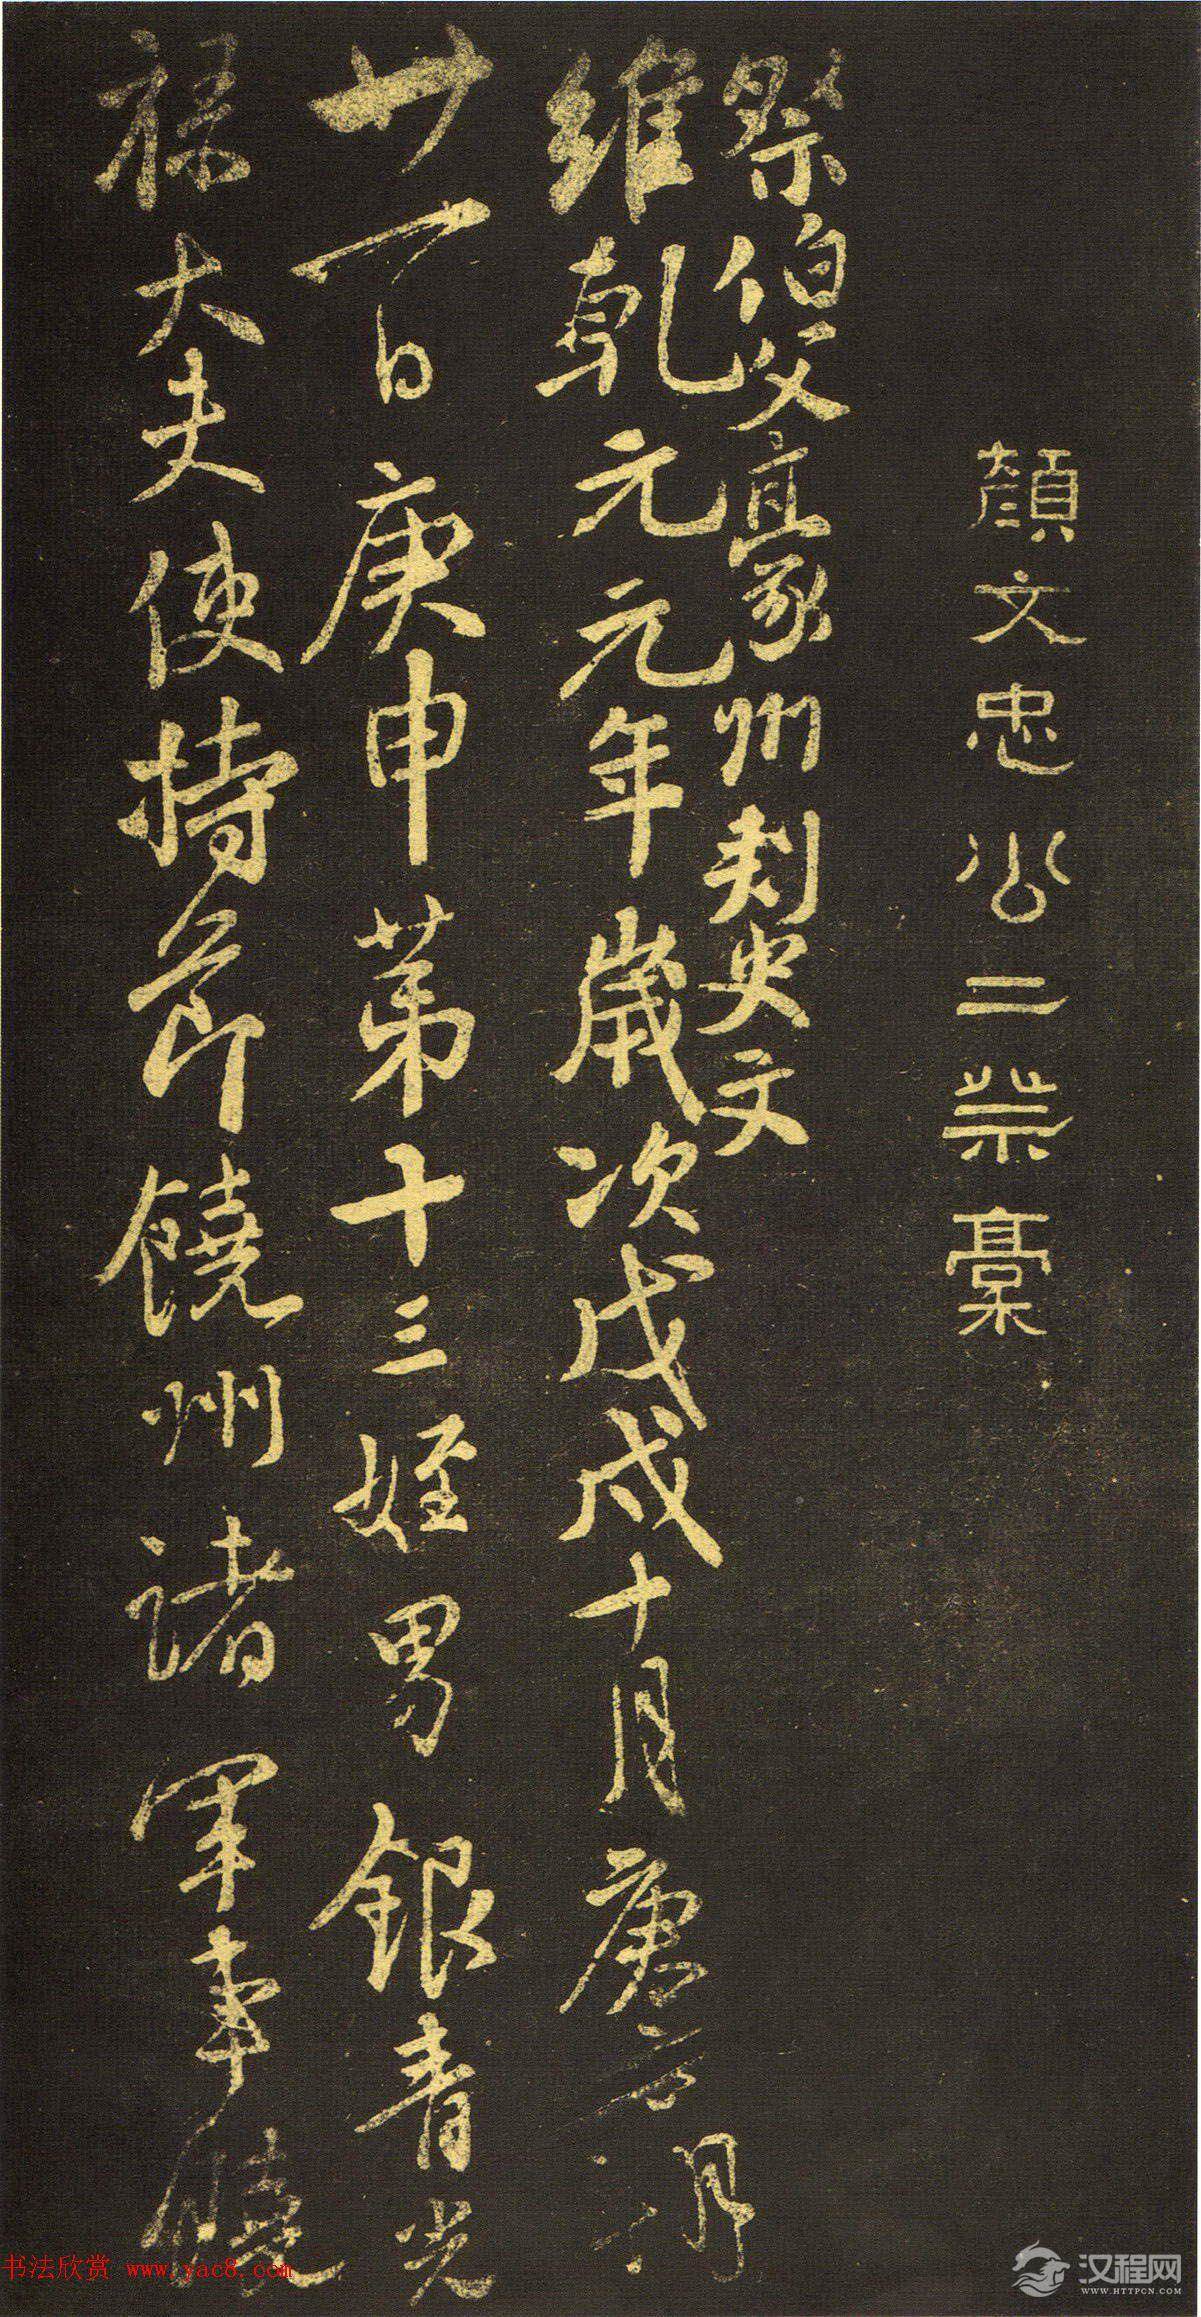 顏文忠公二祭稾
祭伯父豪州刺史文
維乾元元年歲次戊戌十月庚寅朔
廿一日庚申苐十三姪男銀青光
禄大夫使持節饒州諸軍事饒
书法欣赏 www.yac8.com
汉程网
WWW.HTTPCN.COM